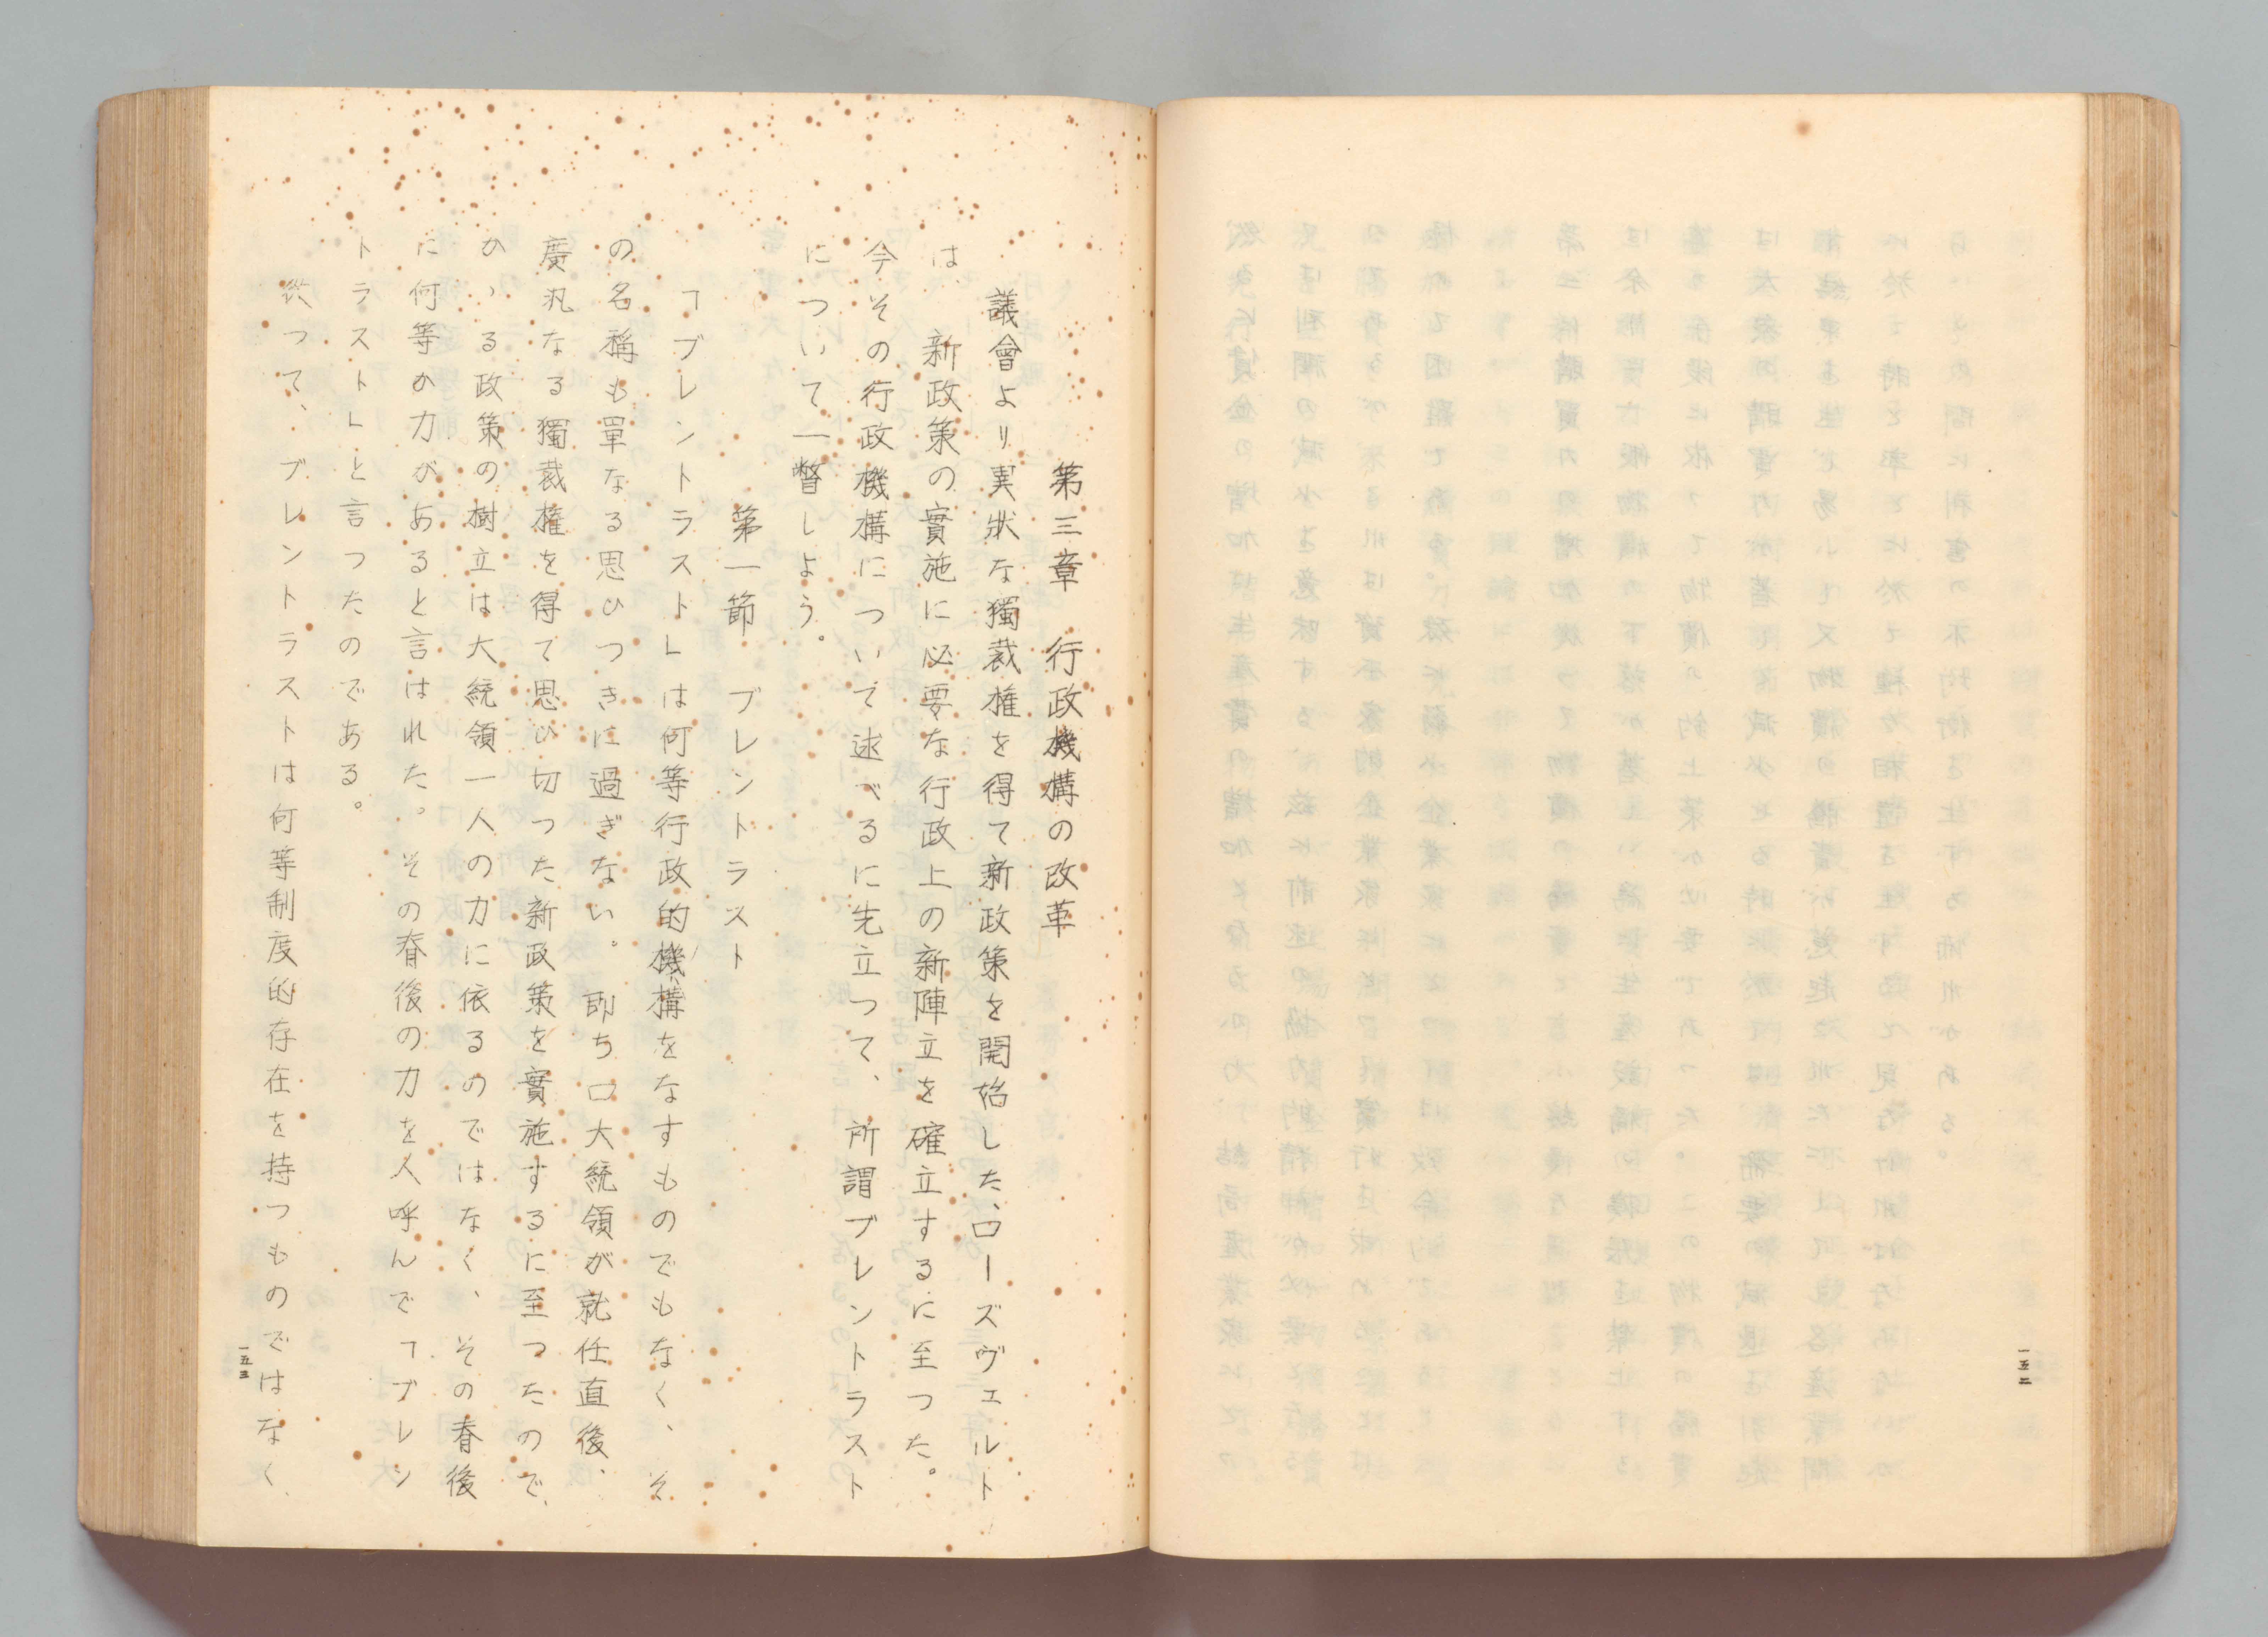 一五二
第三章　行政機構の改革
議會より異狀な獨裁權を得て新政策を開始した、ローズヴェルト
は　新政策の實施に必要な行政上の新陣立を確立するに至つた。
今その行政機構について述べるに先立つて、所謂ブレントラスト
について一瞥しよう。
第一節　ブレントラスト
「ブレントラスト」は何等行政的機構をなすものでもなく、そ
の名稱も單なる思ひつきに過ぎない。卽ちロ大統領が就任直後、
廣汎なる獨裁權を得て思ひ切つた新政策を實施するに至つたので、
かゝる政策の樹立は大統領一人の力に依るのではなく、その脊後
に何等か力があると言はれた。その脊後の力を人呼んで「ブレン
トラスト」と言つたのである。
從つて、ブレントラストは何等制度的存在を持つものではなく、
一五三